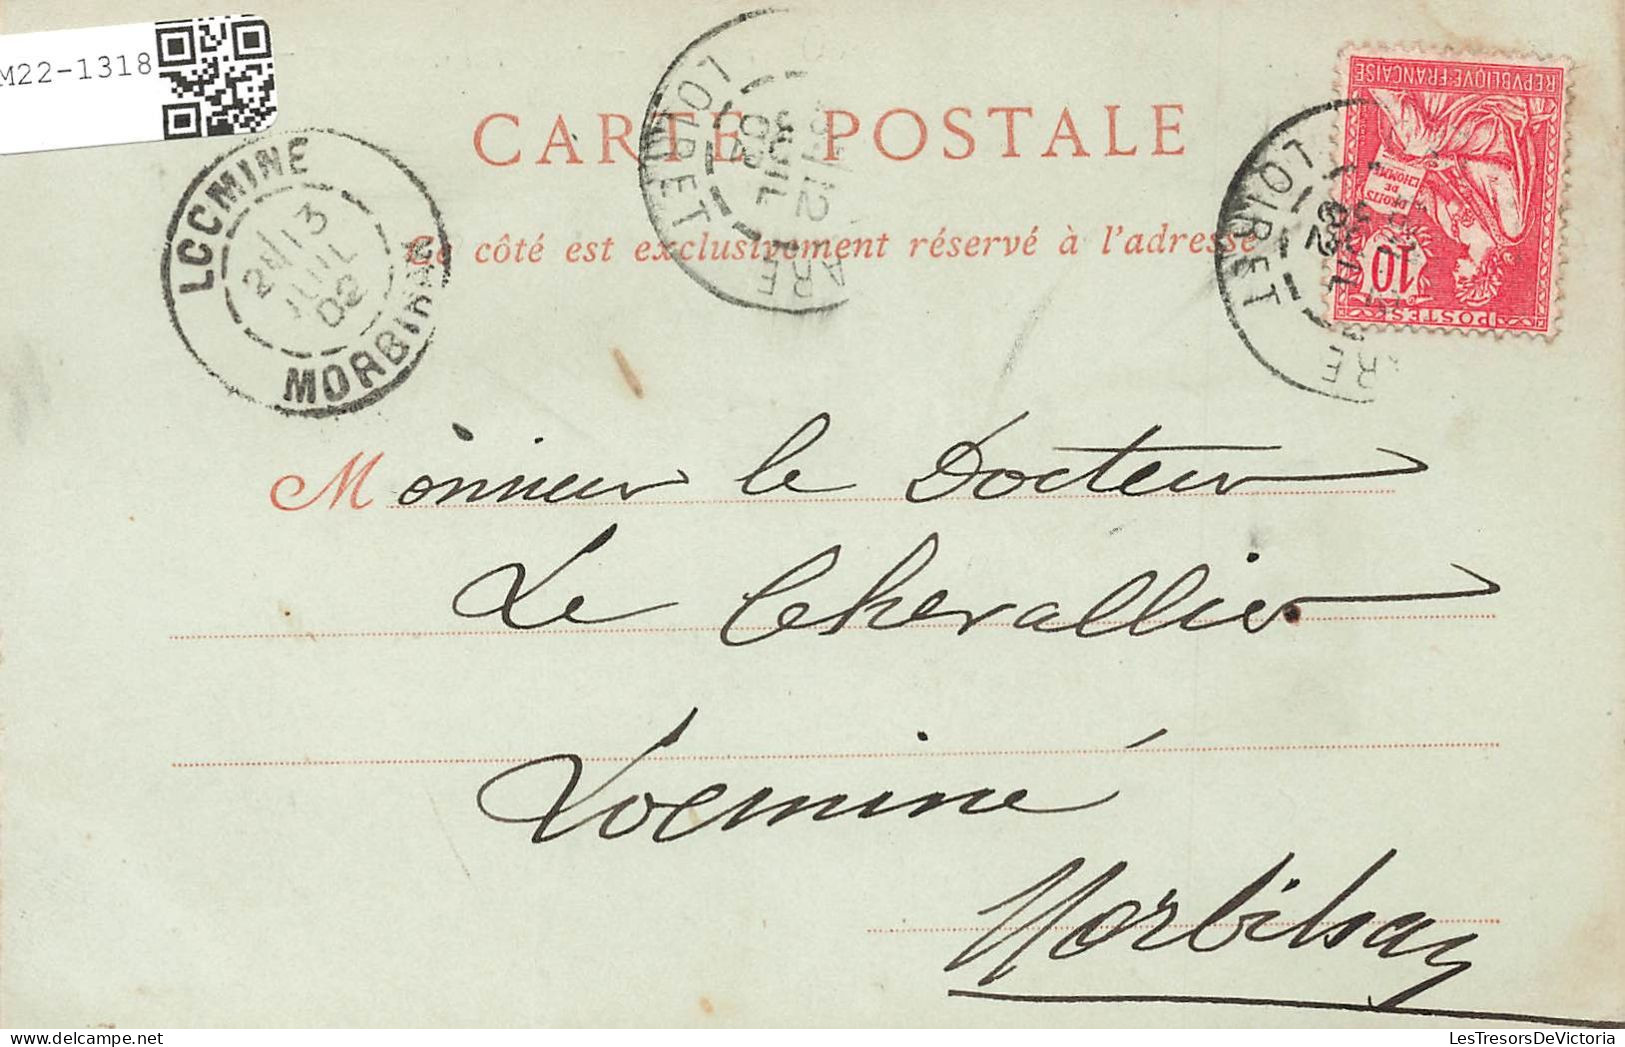 M22-1318
CARTE POSTALE
Ce côté est exclusivement réservé à l'adresse
LOCMINE
2E/13
JUIL
02
MORBIHAN
LOIRET
12
JUIL
02
ARE
LOIRET
JUIL
02
ARE
REPVBLIQVE FRANÇAISE
DROITS
DE
L'HOMME
10
POSTES
Monsieur le Docteur
Le Chevallier
Locminé
Morbihan
LesTresorsDeVictoria